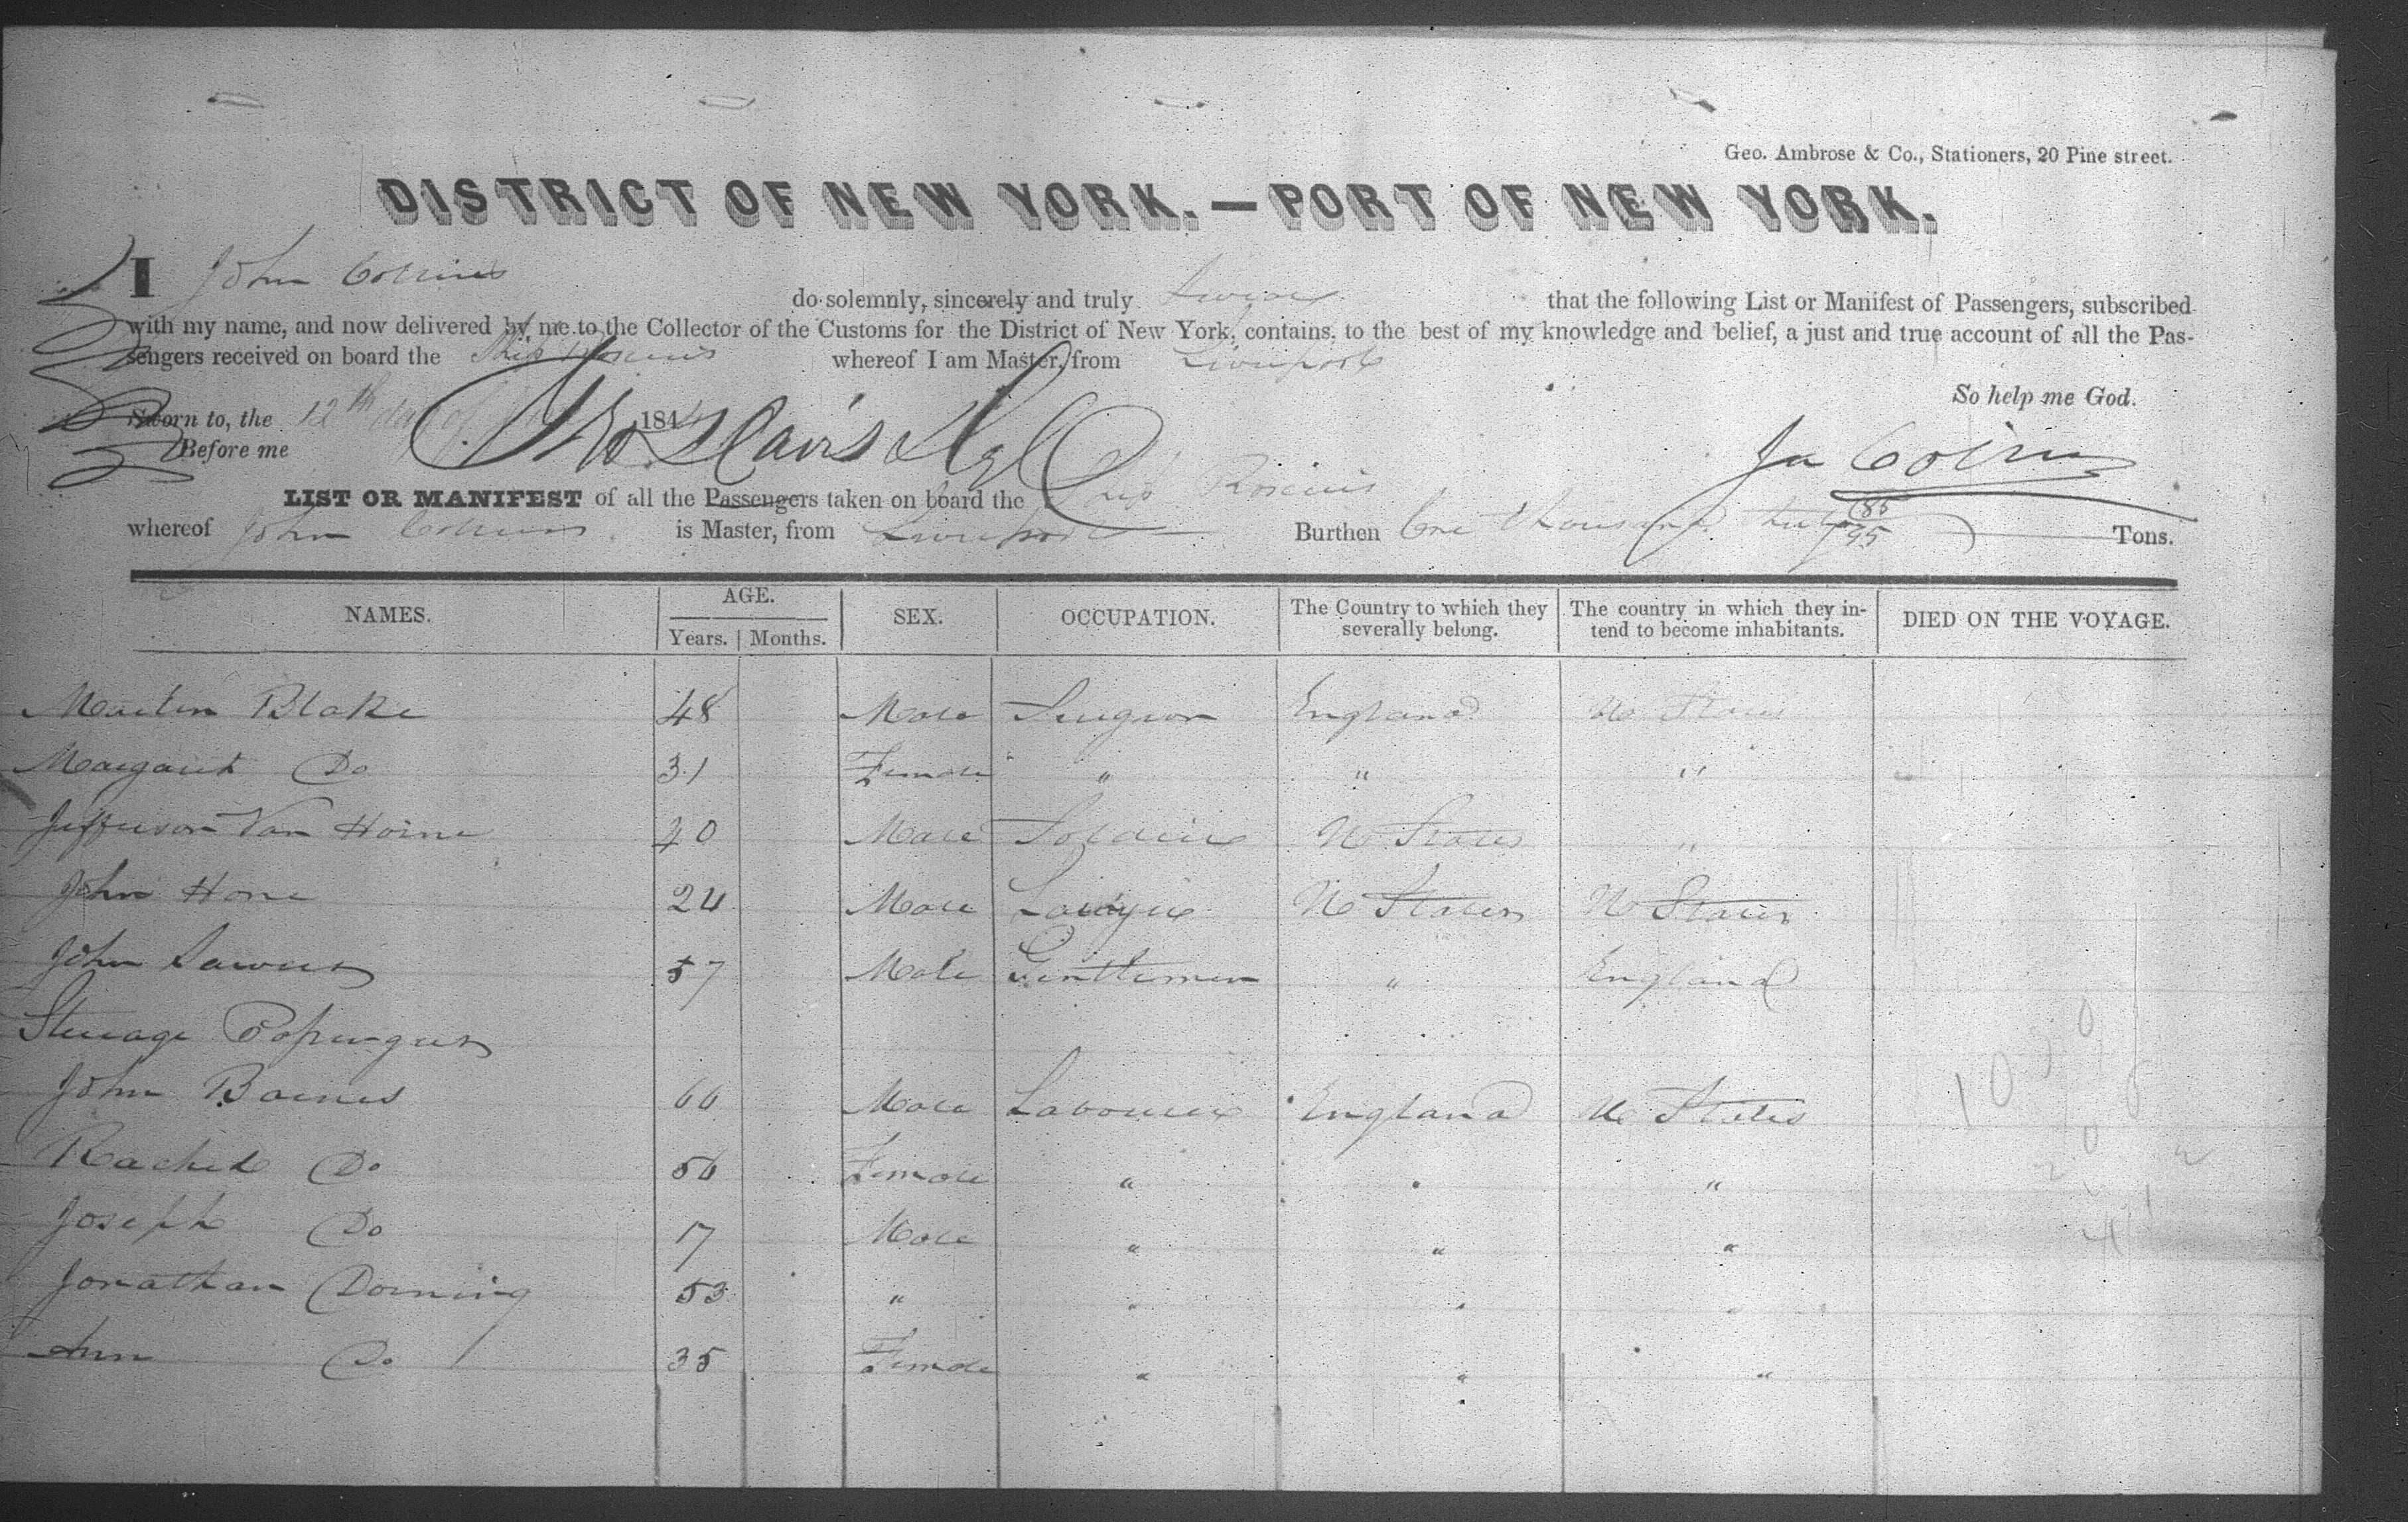 Geo. Ambrose & Co., Stationers, 20 Pine street.
DISTRICT OF NEW YORK.—PORT OF NEW YORK.
I John Collins do solemnly, sincerely and truly Swear that the following List or Manifest of Passengers, subscribed
with my name, and now delivered by me to the Collector of the Customs for the District of New York, contains, to the best of my knowledge and belief, a just and true account of all the Pas-
sengers received on board the Ship Roscius whereof I am Master, from Liverpool
So help me God.
Sworn to, the 12th day of 184
Before me
Jn Collins
LIST OR MANIFEST of all the Passengers taken on board the Ship Roscius
whereof John Collins is Master, from Liverpool Burthen One thousand 85/95 Tons.
NAMES. AGE. SEX. OCCUPATION. The Country to which they severally belong. The country in which they in-tend to become inhabitants. DIED ON THE VOYAGE.
Years. Months.
Martin Blake 48 Male Surgeon England U States
Margaret Do 31 Female " " "
Jefferson Van Horne 40 Male Soldier U States "
John Hone 24 Male Lawyer U States U States
John 57 Male Gentlemen " England
Steerage Passengers
John Barnes 60 Male Labourer England U States
Rachel Do 56 Female " " "
Joseph Do 17 Male " " "
Jonathan Dorning 53 " " " "
Ann Do 35 Female " " "